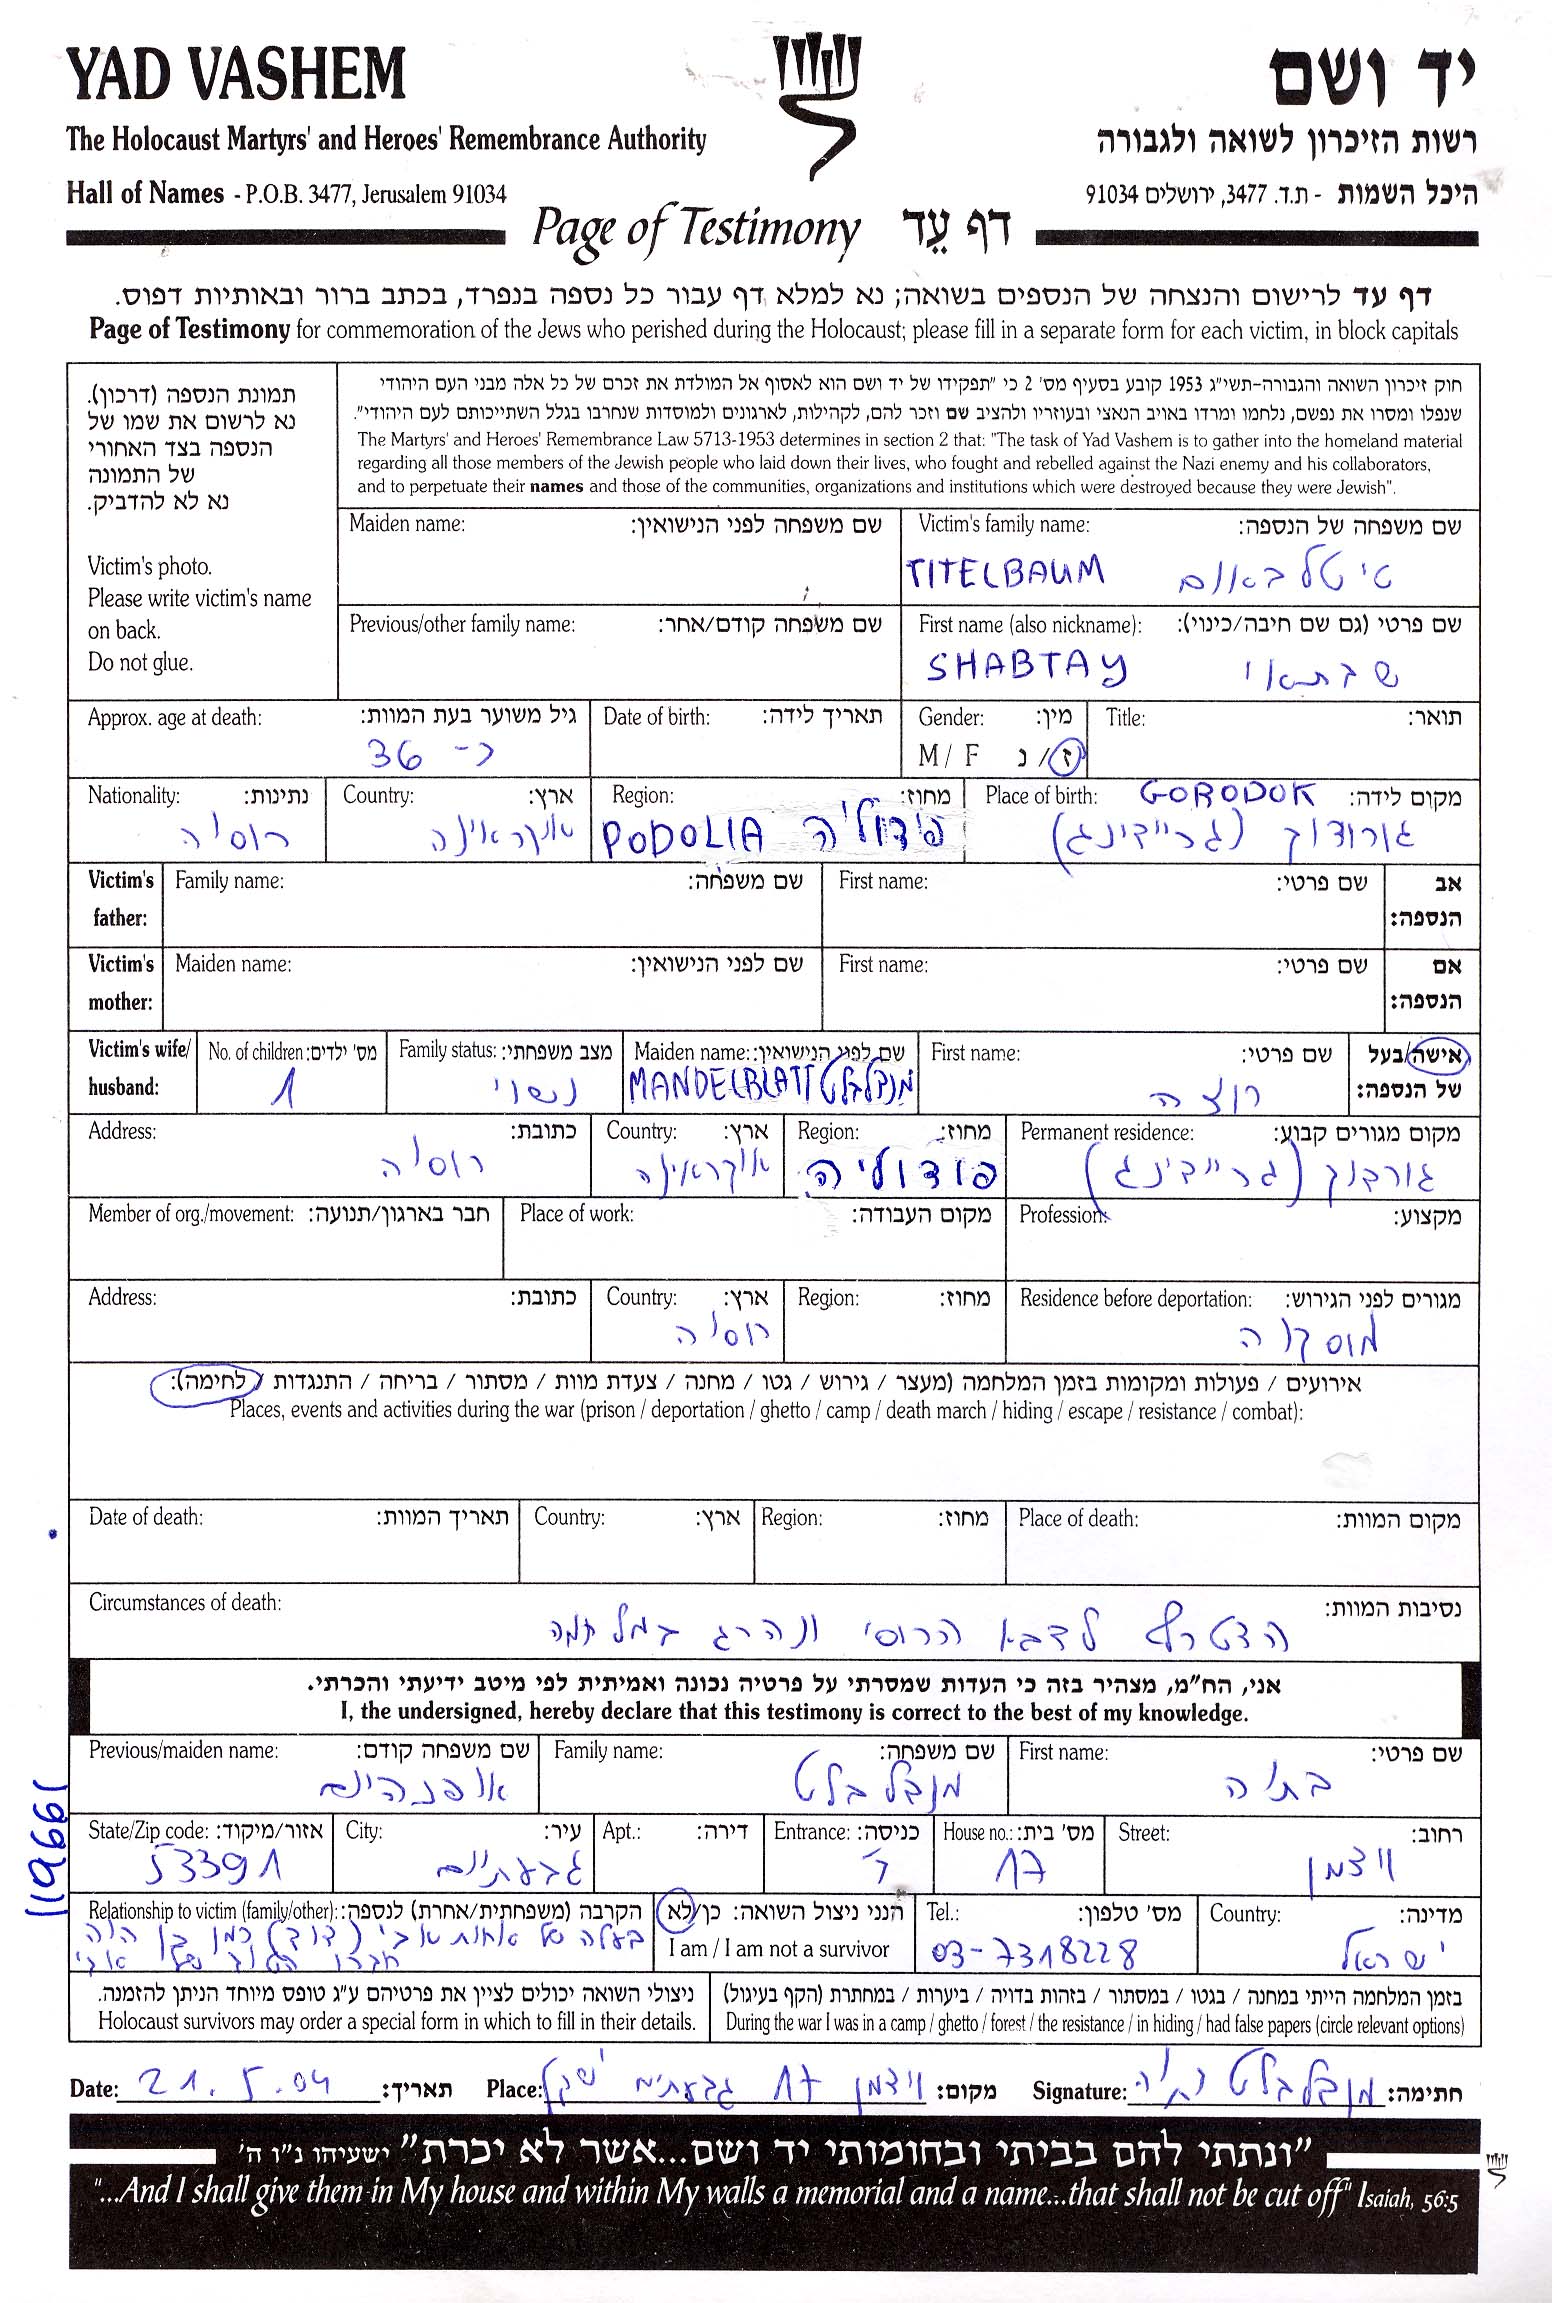 YAD VASHEM
יד ושם
The Holocaust Martyrs' and Heroes' Remembrance Authority
רשות הזיכרון לשואה ולגבורה
Hall of Names - P.O.B. 3477, Jerusalem 91034
היכל השמות - ת.ד. 3477, ירושלים 91034
Page of Testimony דף עֵד
דף עד לרישום והנצחה של הנספים בשואה; נא למלא דף עבור כל נספה בנפרד, בכתב ברור ובאותיות דפוס.
Page of Testimony for commemoration of the Jews who perished during the Holocaust; please fill in a separate form for each victim, in block capitals
תמונת הנספה (דרכון).
נא לרשום את שמו של
הנספה בצד האחורי
של התמונה
נא לא להדביק.
Victim's photo.
Please write victim's name
on back.
Do not glue.
חוק זיכרון השואה והגבורה-תשי"ג 1953 קובע בסעיף מס' 2 כי "תפקידו של יד ושם הוא לאסוף אל המולדת את זכרם של כל אלה מבני העם היהודי
שנפלו ומסרו את נפשם, נלחמו ומרדו באויב הנאצי ובעוזריו ולהציב שם וזכר להם, לקהילות, לארגונים ולמוסדות שנחרבו בגלל השתייכותם לעם היהודי".
The Martyrs' and Heroes' Remembrance Law 5713-1953 determines in section 2 that: "The task of Yad Vashem is to gather into the homeland material
regarding all those members of the Jewish people who laid down their lives, who fought and rebelled against the Nazi enemy and his collaborators,
and to perpetuate their names and those of the communities, organizations and institutions which were destroyed because they were Jewish".
Maiden name: שם משפחה לפני הנישואין:
Victim's family name: שם משפחה של הנספה:
TITELBAUM טיטלבאום
Previous/other family name: שם משפחה קודם/אחר:
First name (also nickname): שם פרטי (גם שם חיבה/כינוי):
SHABTAY שבתאי
Approx. age at death: גיל משוער בעת המוות:
כ- 36
Date of birth: תאריך לידה:
Gender: מין:
M / F ז/ נ
Title: תואר:
Nationality: נתינות:
רוסיה
Country: ארץ:
אוקראינה
Region: מחוז:
PODOLIA פודוליה
Place of birth: GORODOK מקום לידה:
גורודוק (גריידינג)
Victim's father: Family name: שם משפחה: First name: שם פרטי: אב הנספה:
Victim's mother: Maiden name: שם לפני הנישואין: First name: שם פרטי: אם הנספה:
Victim's wife/ husband:
No. of children: מס' ילדים:
1
Family status: מצב משפחתי:
נשוי
Maiden name: שם לפני הנישואין:
MANDELBLATT מנדלבלט
First name: שם פרטי:
רוצה
אישה/בעל של הנספה:
Address: כתובת:
רוסיה
Country: ארץ:
אוקראינה
Region: מחוז:
פודוליה
Permanent residence: מקום מגורים קבוע:
גורדוק (גריידינג)
Member of org./movement: חבר בארגון/תנועה:
Place of work: מקום העבודה:
Profession: מקצוע:
Address: כתובת:
Country: ארץ:
רוסיה
Region: מחוז:
Residence before deportation: מגורים לפני הגירוש:
מוסקוה
אירועים / פעולות ומקומות בזמן המלחמה (מעצר / גירוש / גטו / מחנה / צעדת מוות / מסתור / בריחה / התנגדות / לחימה):
Places, events and activities during the war (prison / deportation / ghetto / camp / death march / hiding / escape / resistance / combat):
Date of death: תאריך המוות:
Country: ארץ:
Region: מחוז:
Place of death: מקום המוות:
Circumstances of death: נסיבות המוות:
הצטרף לצבא הרוסי ונהרג במלחמה
אני, הח"מ, מצהיר בזה כי העדות שמסרתי על פרטיה נכונה ואמיתית לפי מיטב ידיעתי והכרתי.
I, the undersigned, hereby declare that this testimony is correct to the best of my knowledge.
Previous/maiden name: שם משפחה קודם:
אופנהיים
Family name: שם משפחה:
מנדלבלט
First name: שם פרטי:
בתיה
State/Zip code: אזור/מיקוד:
53391
City: עיר:
גבעתיים
Apt.: דירה:
Entrance: כניסה:
ד'
House no.: מס' בית:
17
Street: רחוב:
ויצמן
Relationship to victim (family/other): הקרבה (משפחתית/אחרת) לנספה:
בעלה של אחות אבי (דוד) כמו כן היה
חברו הטוב של אבי
הנני ניצול השואה: כן/לא
I am / I am not a survivor
Tel.: מס' טלפון:
03-7318228
Country: מדינה:
ישראל
119661
ניצולי השואה יכולים לציין את פרטיהם ע"ג טופס מיוחד הניתן להזמנה.
Holocaust survivors may order a special form in which to fill in their details.
בזמן המלחמה הייתי במחנה / בגטו / במסתור / בזהות בדויה / ביערות / במחתרת (הקף בעיגול)
During the war I was in a camp / ghetto / forest / the resistance / in hiding / had false papers (circle relevant options)
Date: 21.5.04 תאריך: Place: ויצמן 17 גבעתיים מקום: Signature: מנדלבלט בתיה חתימה:
"ונתתי להם בביתי ובחומותי יד ושם...אשר לא יכרת" ישעיהו נ"ו ה'
"...And I shall give them in My house and within My walls a memorial and a name...that shall not be cut off" Isaiah, 56:5